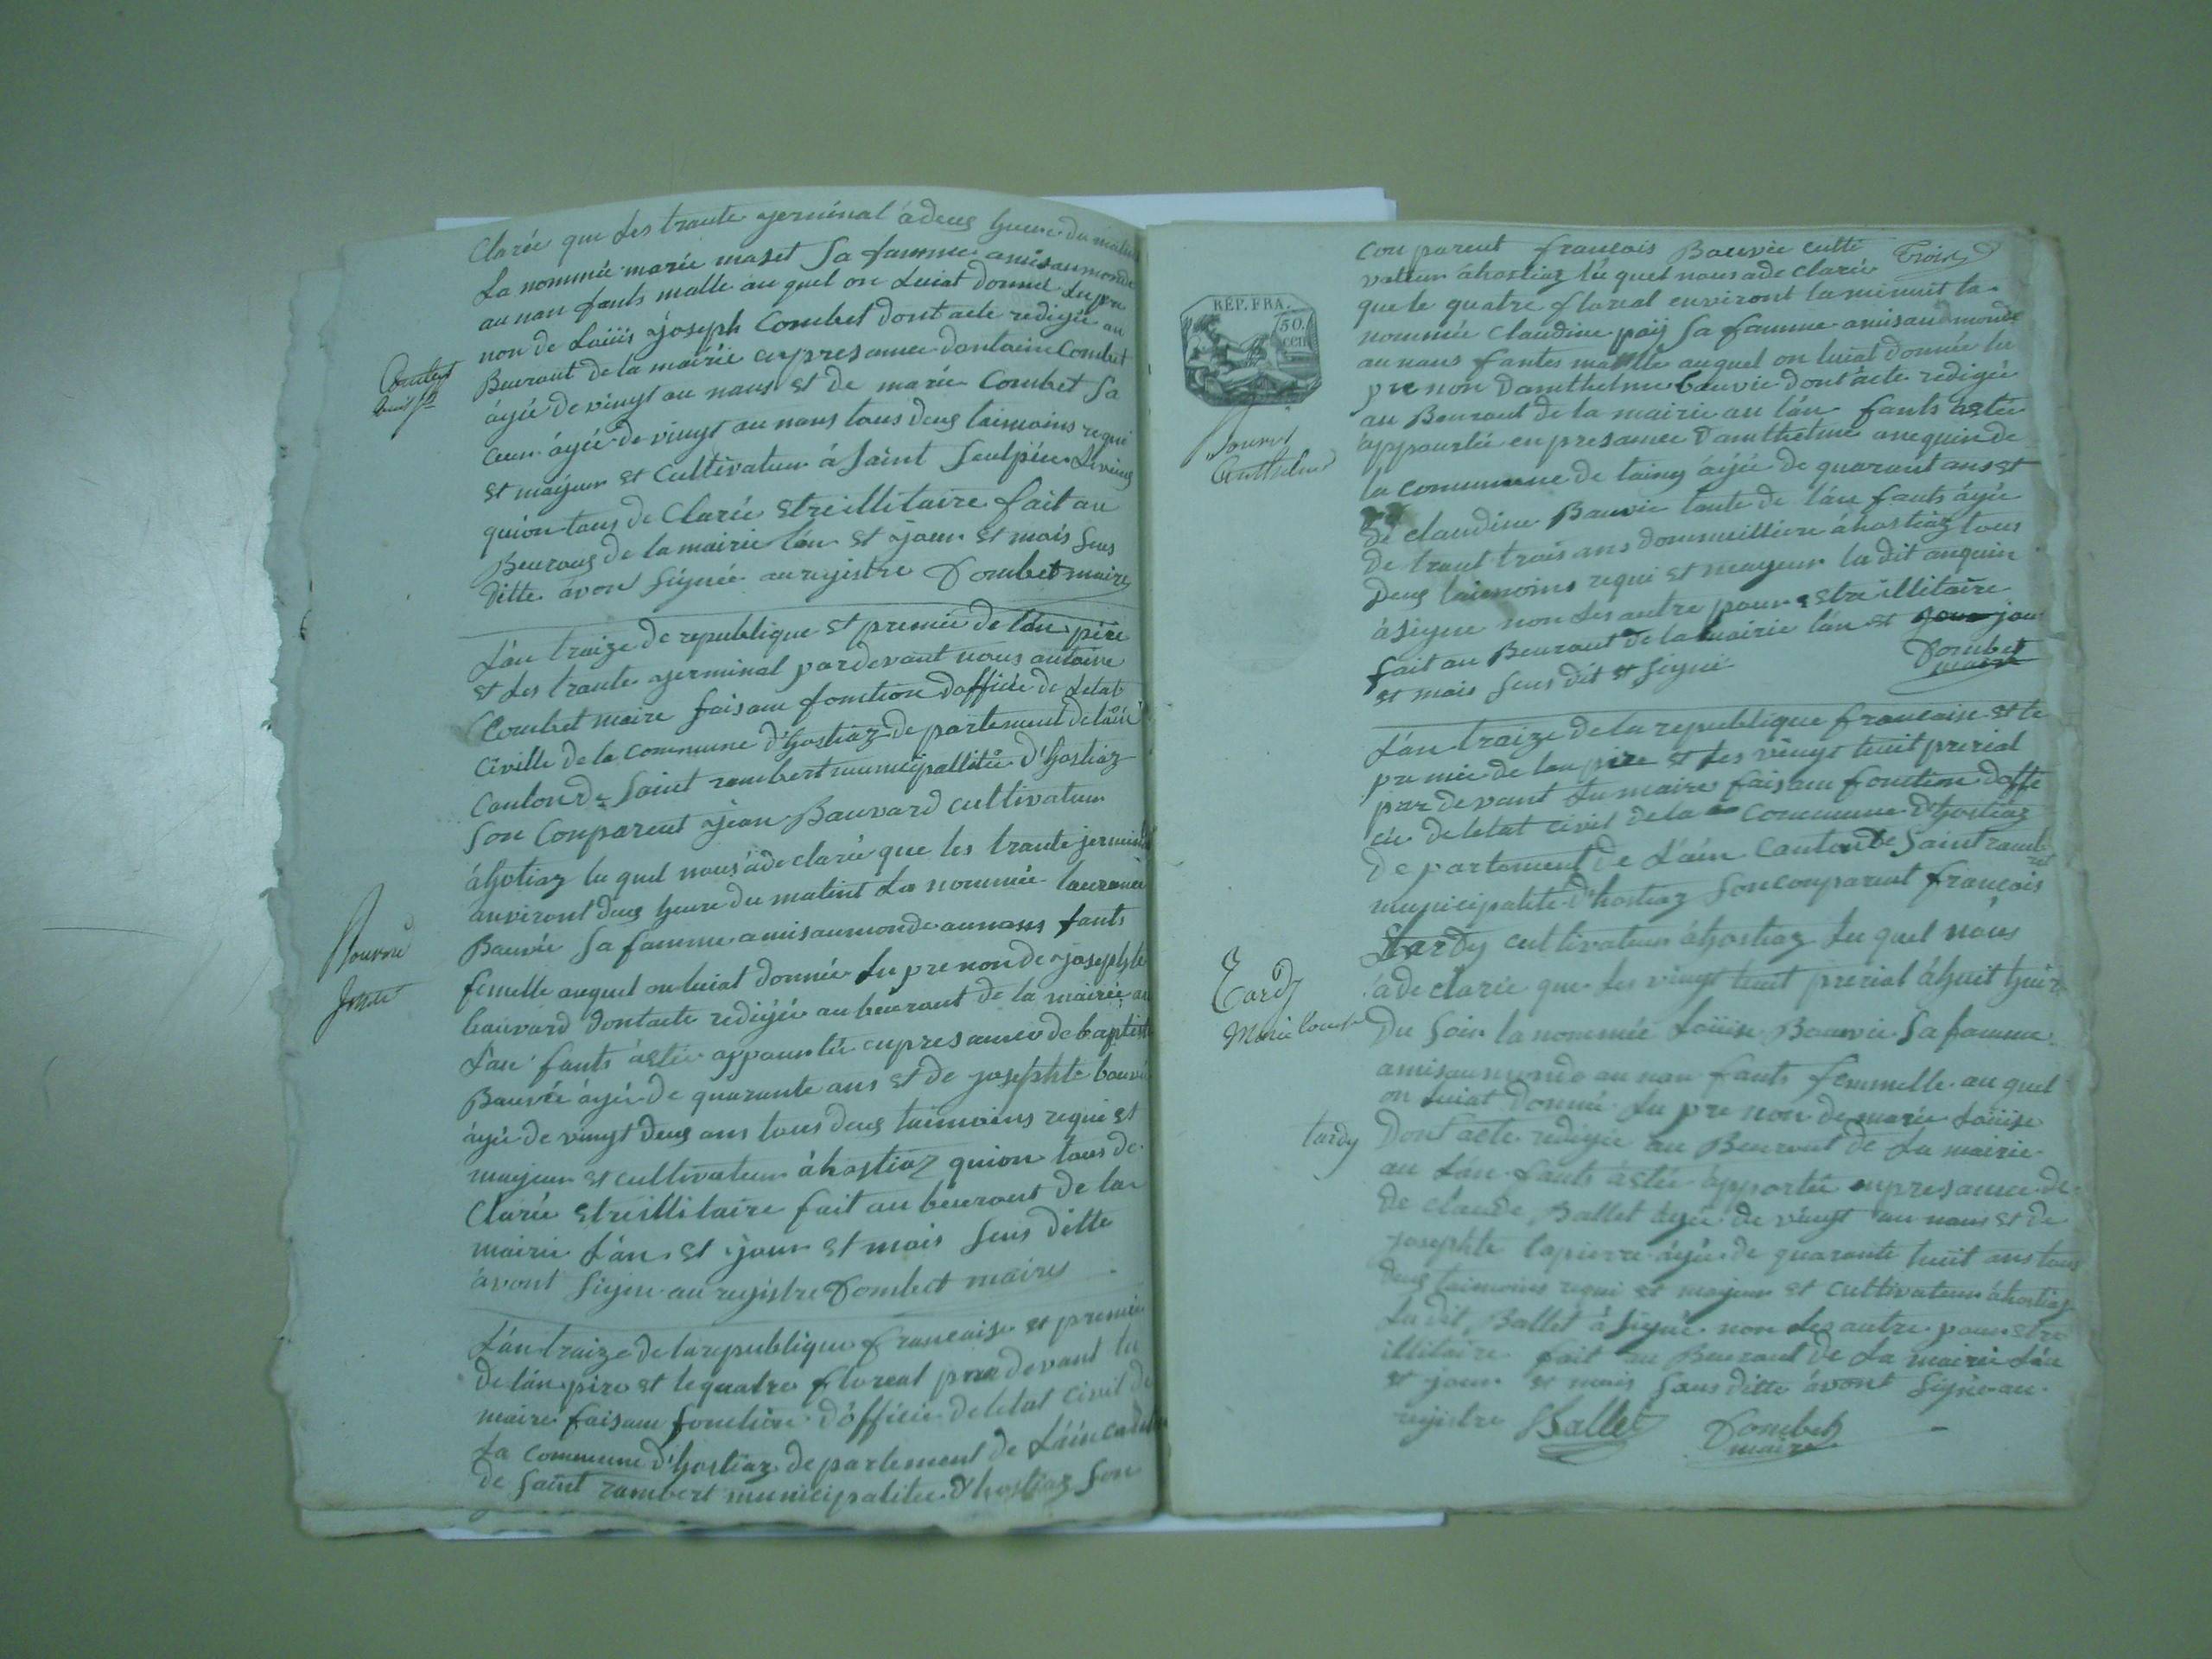 Clarée que Les trante germinal à deus heure du matin
La nommée marie maset Sa famme amis au monde
au nan fants malle au quel on Luiat donné Lu pre
non de Loüis joseph Combet dont acte redigée au
Combet
Beuraut de la mairie en presance dantoine Combet
âgée de vingt au nans et de marie Combet Sa
ceur âgée de vingt au nans tous deus taimoins requi
et mayeur et Cultivateur à Saint Seulpice
quion tous de Clarée etre illitaire fait au
Beuraus de la mairie lan et jour et mois Sus
ditte avon Signée au registre Combet maire
L'an traize de republique et premié de lan pire
et Les trante germinal pardevant nous antoine
Combet maire faisant fonction dofficié de Letat
Civille de la Commune d'hostiaz departement de lain
Canton de Saint rambert municipallitée d'hostiaz
Son Conparent jean Bauvard cultivateur
à hotiaz lu quel nous àde clarée que les trante jerminal
anviront deus heure du matint La nommée laurance
Bauvée Sa famme amis au monde au nans fants
femelle auquel on luiat donnée Lu pre non de josephte
Josette
bauvard dont acte redigée au beuraut de la mairie au
L'an fants àetée appountée en presance de baptiste
Bauvée âgée de quarante ans et de josephte bauvée
âgée de vingt deus ans tous deus taimoins requi et
mayeur et cultivateur à hostiaz quion tous de
Clarée etre illitaire fait au beuraut de la
mairie L'an et jour et mois Sus ditte
avont Signe au registre Combet maire
L'an traize de la republique francaise et premié
de lan pire et le quatre floreal par devant lu
maire faisant fonction d'officié de letat civil de
La Commune d'hostiaz departement de L'ain canton
de Saint rambert municipalitée d'hostiaz Son
conparent francois Bauvée culti
Trois
vateur à hostiaz lu quel nous ade clarée
que le quatre floreal environt la minuit la
RÉP. FRA.
50.
CEN.
nommée Claudine paij Sa famme amis au monde
au nans fantes malle auquel on luiat donnée lu
pre non Danthelme bauvie dont acte redigée
au Beuraut de la mairie au lan fants àetée
appourtée en presance Danthelme anequin de
Anthelme
la commune de tainy âgée de quarant ans et
De claudine Bauvie tante de lan fants âgée
de trant trois ans dommeilliere à hostiaz tous
Deus taimoins requi et mayeur lu dit anquin
à Signe non Les autre pour etre illitaire
fait au Beuraut de la mairie lan et jour
et mois Sus dit et Signé
Combet
maire
L'an traize de la republique francaise et le
pre mié de lan pire et Les vingt huit prerial
par devant Lu maire faisant fonction doffi
cié de letat civil de la Commune d'hostiaz
De partement de L'ain Canton de Saint ramb
ert
municipalité d'hostiaz Son conparent françois
tardy cultivateur à hostiaz Lu quel nous
àde clarée que Les vingt huit prerial à huit heure
Tardy
Marie Louise
Du Soir la nommée Loüise Bauvie Sa famme
amis au monde au nan fants femmelle au quel
on Luiat donnée Lu pre non de marie Loüise
tardy
Dont acte redigée au Beuraut de La mairie
au Lan fants àetée apportée en presance de
de claude Ballet âgée de vingt au nans et de
josephte lapierre âgée de quarante huit ans tous
Deus taimoins requi et mayeur et cultivateur à hostiaz
Lu dit Ballet à Signé non Les autre pour etre
illitaire fait au Beuraut de La mairie Lan
et jour et mois Sus ditte avont Signé au
registre Ballet
Combet
maire